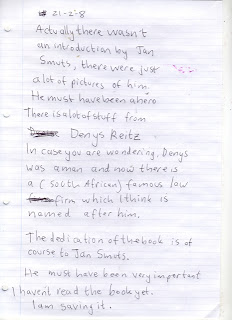 21-2-8
Actually there wasn't
an introduction by Jan
Smuts, there were just
a lot of pictures of him.
He must have been a hero
There is a lot of stuff from
Denys Reitz
In case you are wondering, Denys
was a man and now there is
a (South African) famous law
firm which I think is
named after him.
The dedication of the book is of
course to Jan Smuts.
He must have been very important
I haven't read the book yet.
I am saving it.